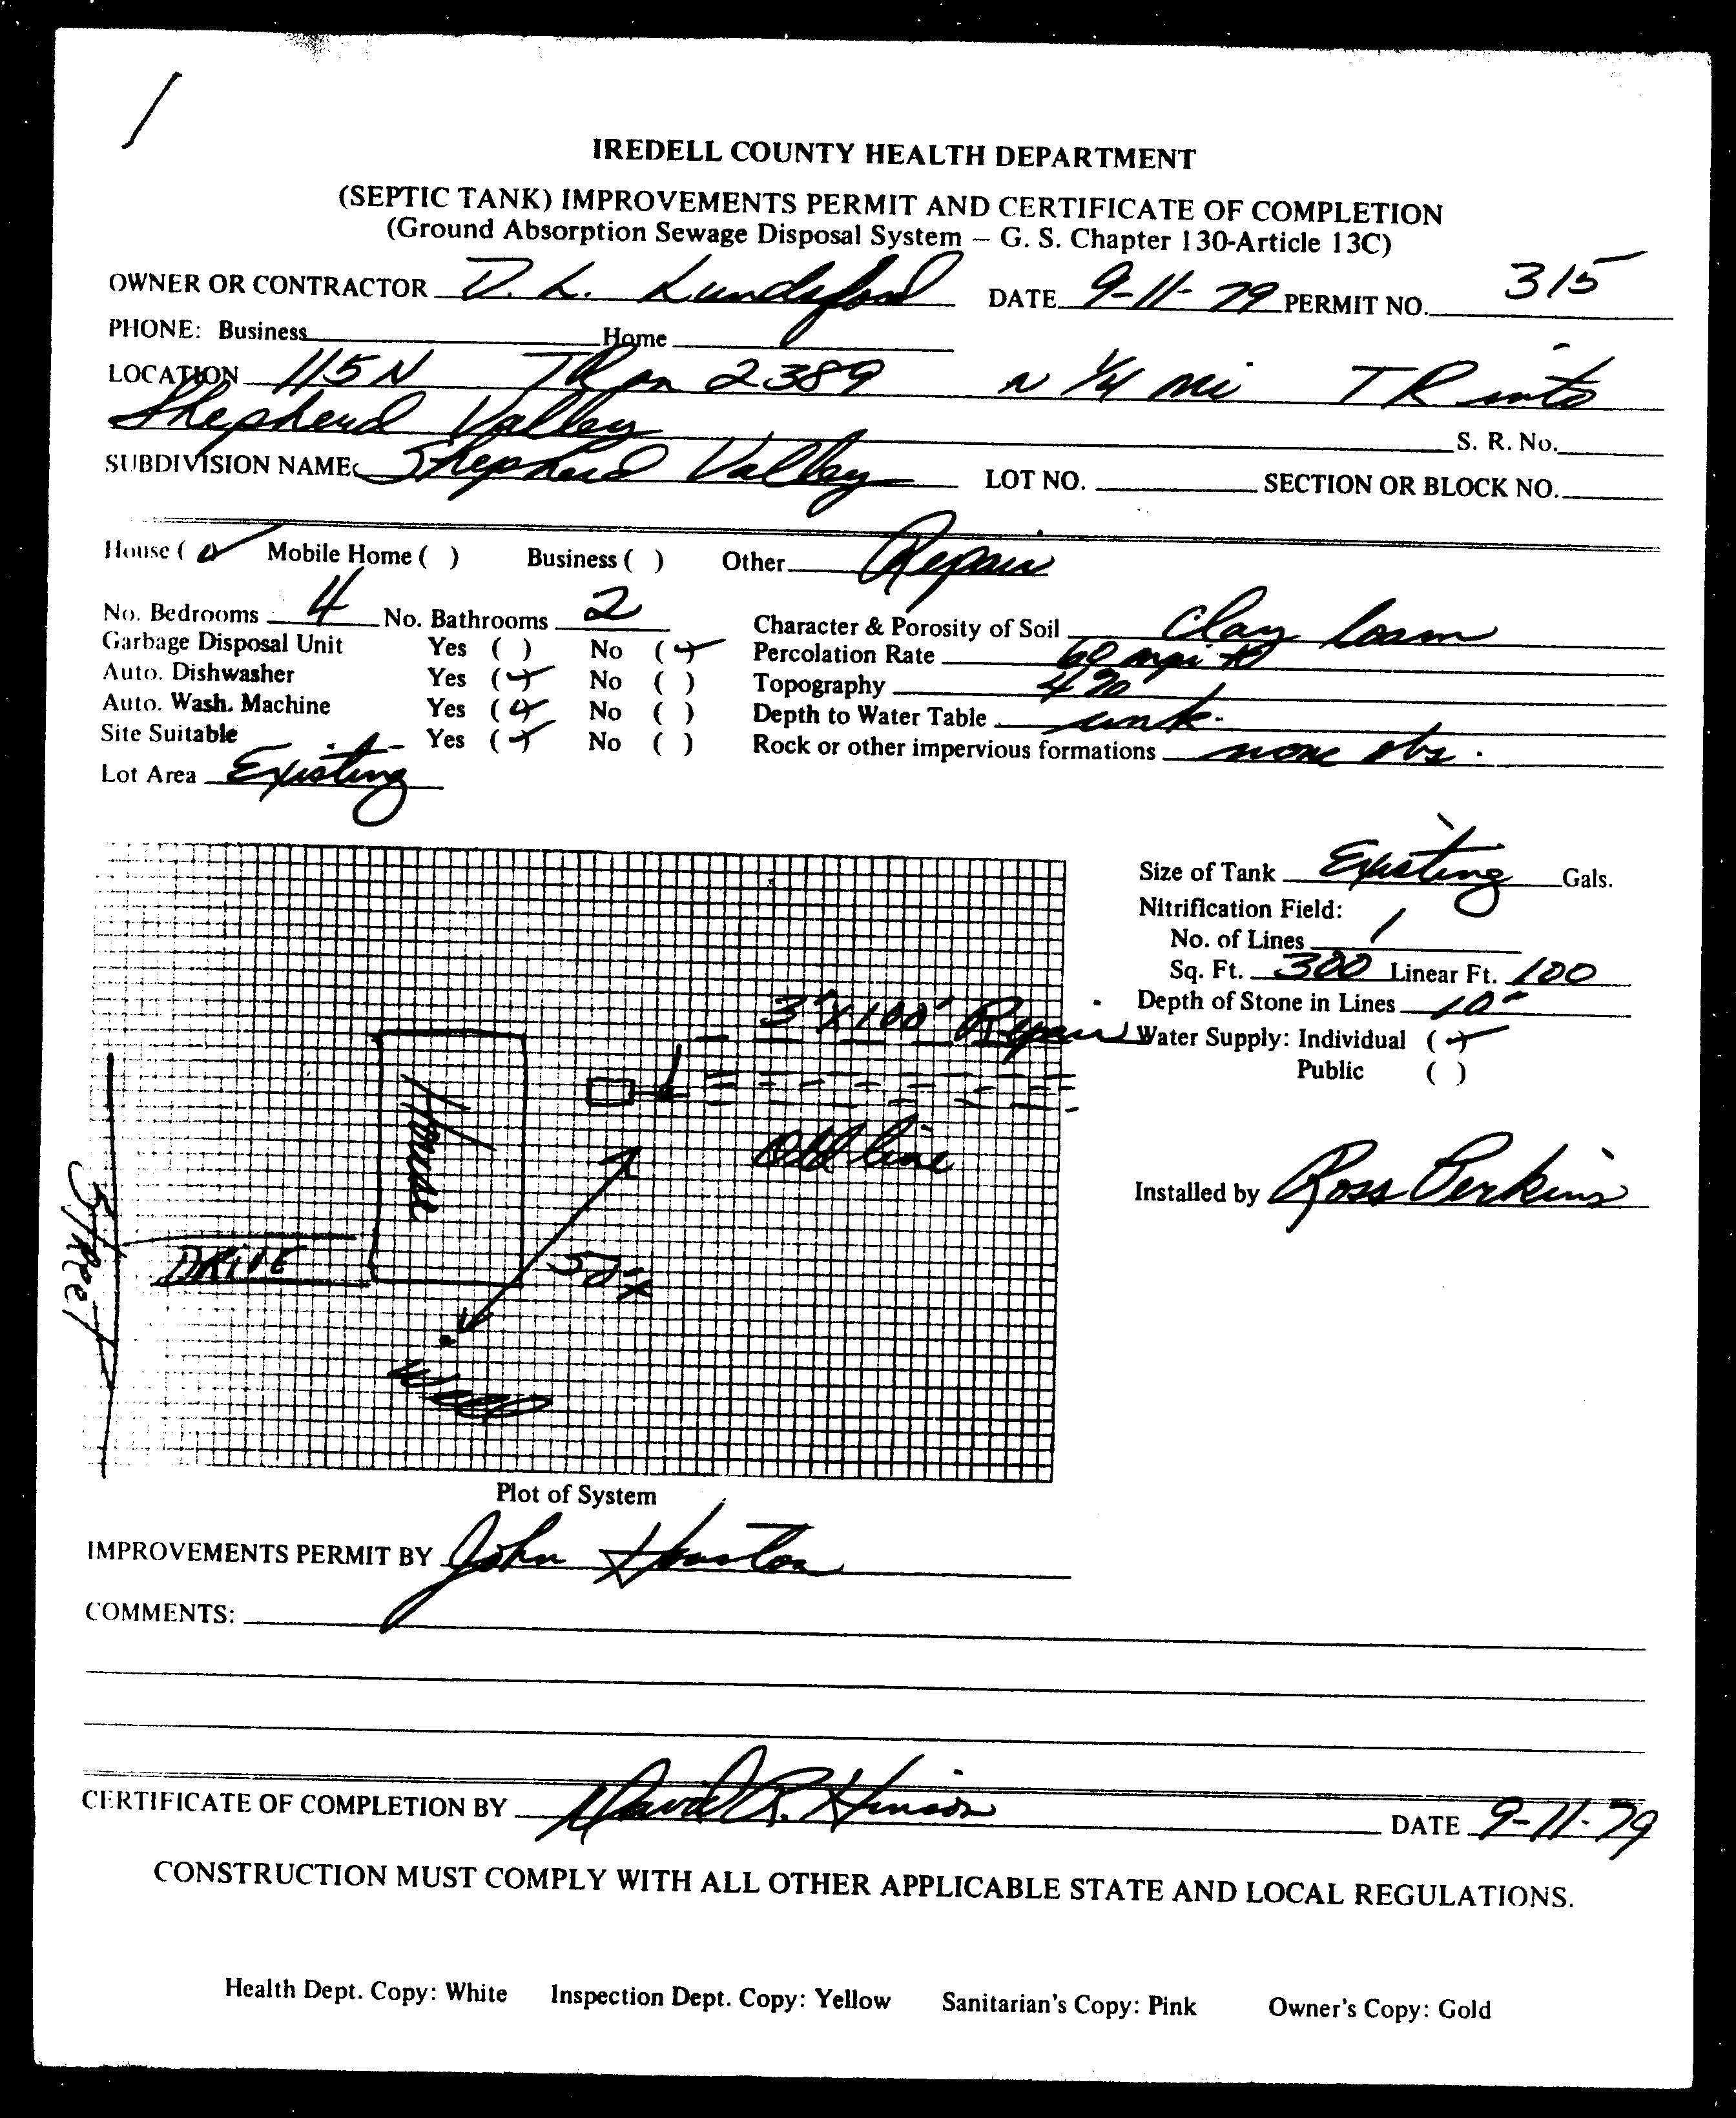 IREDELL COUNTY HEALTH DEPARTMENT
(SEPTIC TANK) IMPROVEMENTS PERMIT AND CERTIFICATE OF COMPLETION
(Ground Absorption Sewage Disposal System – G. S. Chapter 130-Article 13C)
OWNER OR CONTRACTOR D. L. Lundsford DATE 9-11-79 PERMIT NO. 315
PHONE: Business Home
LOCATION 115 N TR on 2389 N 1/4 mi TR into
Shepherd Valley S. R. No.
SUBDIVISION NAME Shepherd Valley LOT NO. SECTION OR BLOCK NO.
House (✓) Mobile Home ( ) Business ( ) Other Repair
No. Bedrooms 4 No. Bathrooms 2 Character & Porosity of Soil Clay loam
Garbage Disposal Unit Yes ( ) No (✓) Percolation Rate 60 mpi
Auto. Dishwasher Yes (✓) No ( ) Topography 4%
Auto. Wash. Machine Yes (✓) No ( ) Depth to Water Table unk.
Site Suitable Yes (✓) No ( ) Rock or other impervious formations none obs.
Lot Area Existing
Size of Tank Existing Gals.
Nitrification Field:
No. of Lines 1
Sq. Ft. 300 Linear Ft. 100
Depth of Stone in Lines 10"
Water Supply: Individual (✓)
Public ( )
3'X100' Repair
House
Old line
Installed by Ross Perkins
Street
DRIVE
Well
Plot of System
IMPROVEMENTS PERMIT BY John Houston
COMMENTS:
CERTIFICATE OF COMPLETION BY David R. Hinson DATE 9-11-79
CONSTRUCTION MUST COMPLY WITH ALL OTHER APPLICABLE STATE AND LOCAL REGULATIONS.
Health Dept. Copy: White Inspection Dept. Copy: Yellow Sanitarian's Copy: Pink Owner's Copy: Gold